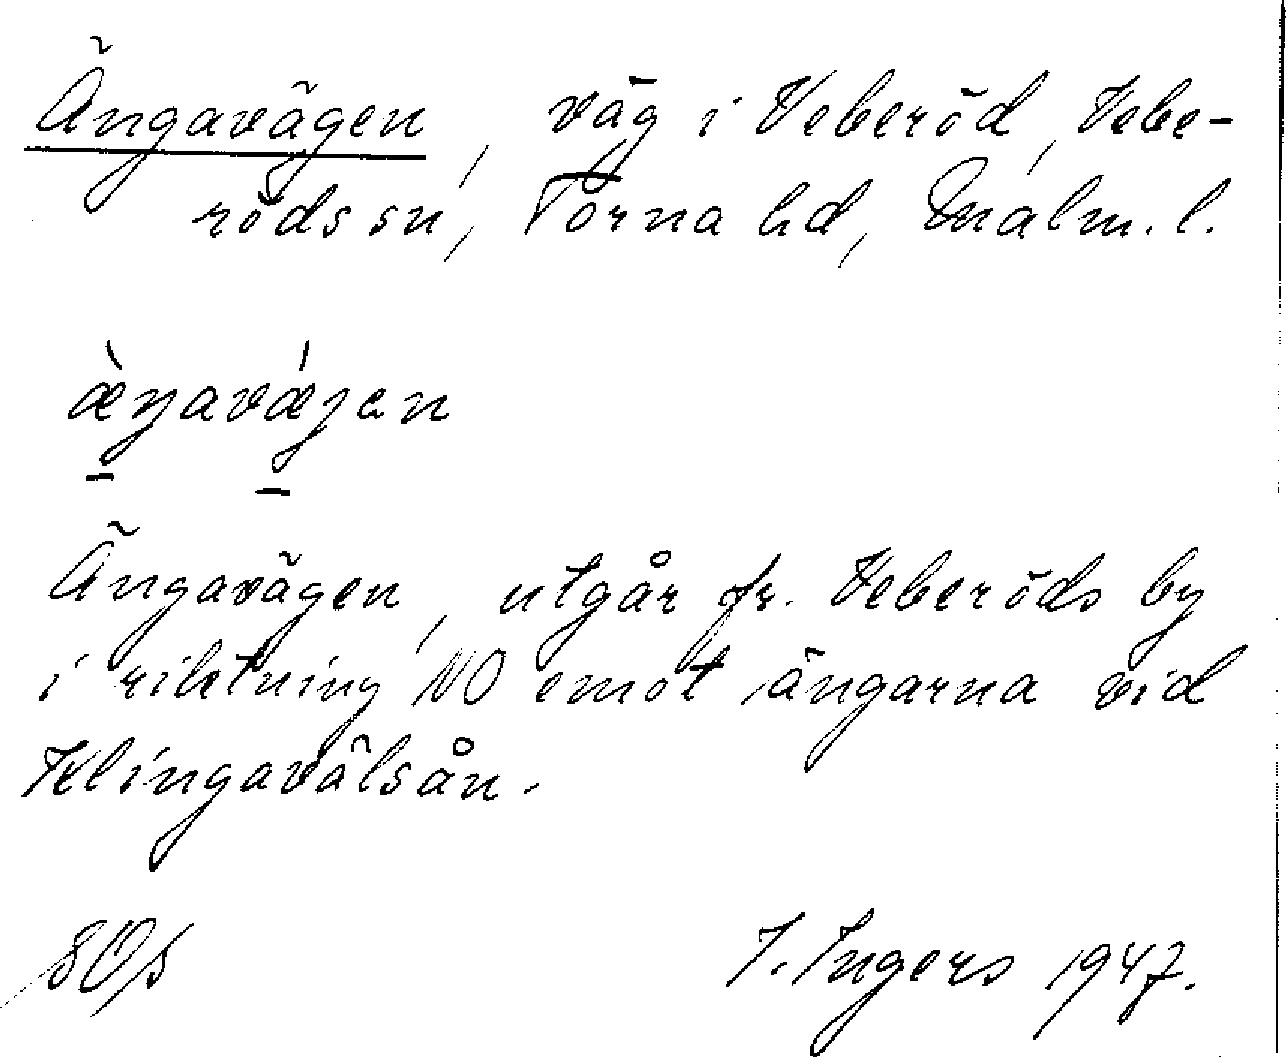 Ängavägen, väg i Veberöd, Vebe-
röds sn, Torna hd, Malm. l.
æ̀ŋavǽjen
Ängavägen, utgår fr. Veberöds by
i riktning NO emot ängarna vid
Klingavälsån.
I. Ingers 1947.